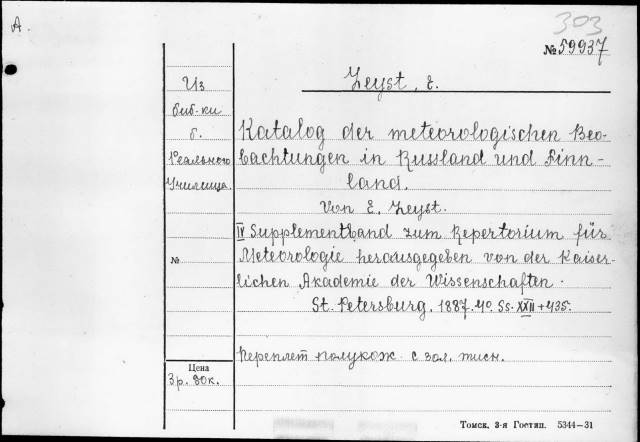 A.
303
№ 59937
Leyst, E.
Из
биб-ки
б.
Реального
Училища.
№
Katalog der meteorologischen Beo-
bachtungen in Russland und Finn-
land.
Von E. Leyst.
IV Supplementband zum Repertorium für
Meteorologie herausgegeben von der Kaiser-
lichen Akademie der Wissenschaften.
St. Petersburg. 1887. 4º. Ss. XXII + 435.
Переплет полукож. с зол. тисн.
Цена
3 р. 80 к.
Томск, 3-я Гостип. 5344—31